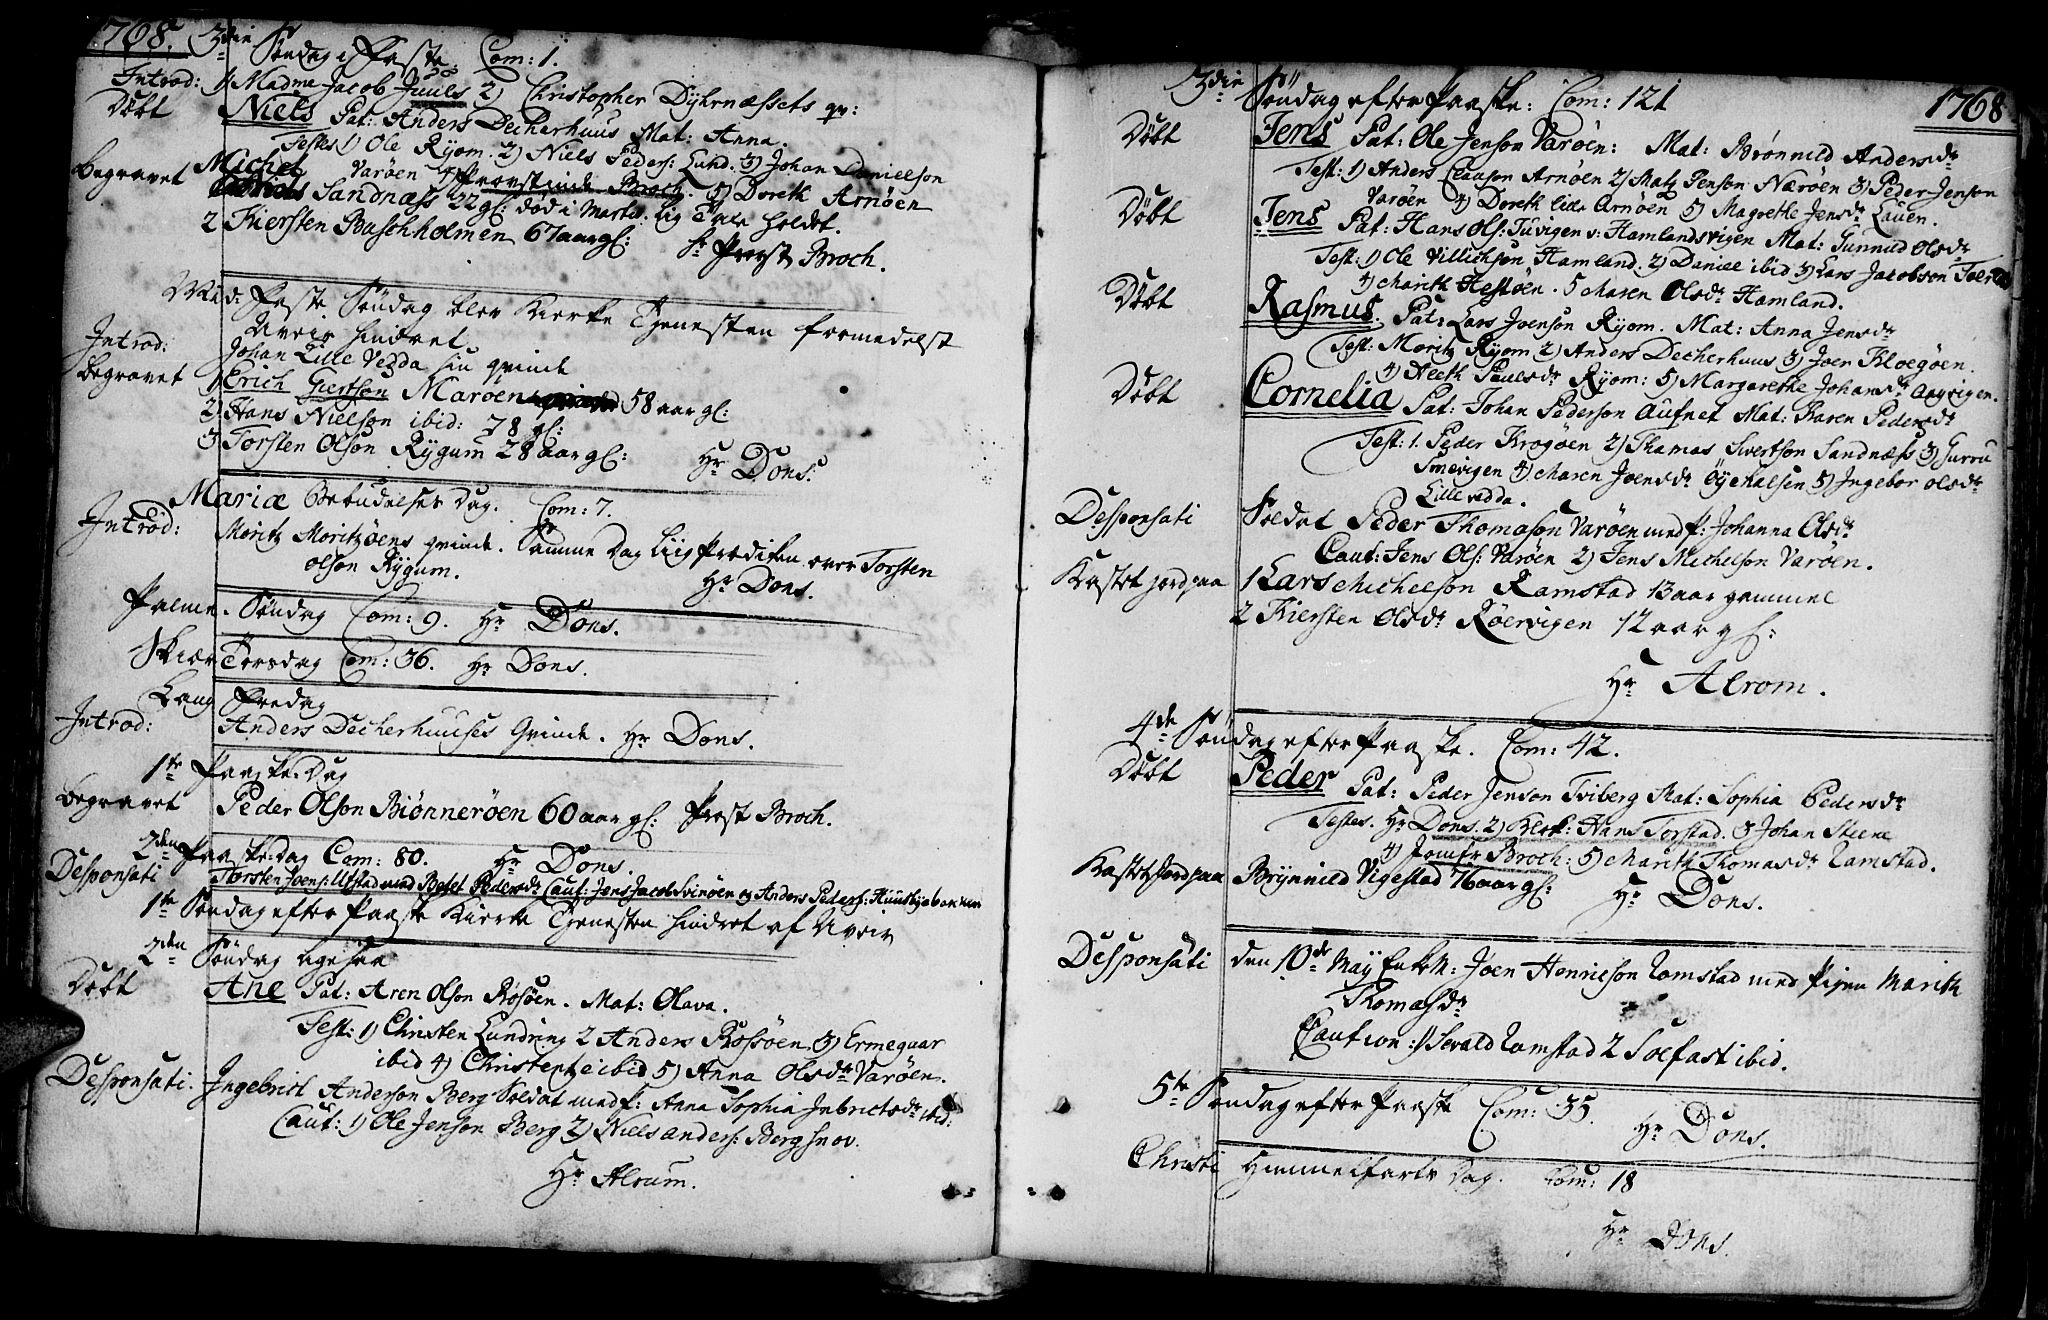 1768. 3die Søndag i Faste. Com: 1.
Introd: 1. Madme Jacob Juuls 2) Christopher Dyhrnæssets qv:
Døbt Niels Pat: Anders Decherhuus Mat: Anna.
Testes 1) Ole Ryom. 2) Niels Peders: Lund. 3) Johan Danielson
Varøen 4) Provstinde Broch. 5) Doreth Arnøen
Begravet Michel Sandnæss 22 gl: død i Martii. Lig Tale holdet.
2 Kiersten Buschholmen 67 aar gl: Hr Provst Broch.
Mid: Faste Søndag blev Kierke Tjenesten formedelst
Uveir hindret
Introd: Johan Lille Vedda sin qvinde
Begravet 1 Erich Giertson Marøen 58 aar gl:
2) Hans Nielson ibid: 78 gl:
3 Torsten Olson Rygum 28 aar gl: Hr Dons.
Mariæ Bebudelses Dag. Com: 7.
Introd: Moritz Moritzøens qvinde. Samme Dag Liig Prediken over Torsten
Olson Rygum. Hr Dons.
Palme. Søndag Com: 9. Hr Dons.
Skiær Torsdag Com: 36. Hr Dons.
Lang Fredag
Introd: Anders Decherhuuses Qvinde. Hr Dons.
1te Paaske Dag
Begravet Peder Olson Biønnerøen 60 aar gl: Prost Broch.
2den Paaske dag Com: 80. Hr Dons.
Desponsati Torsten Joens: Ulstad med Beret Pedersdr Caut: Jens Jacobs Svinøen og Anders Peders:
1te Søndag efter Paaske Kierke Tjenesten hindret af Uveir
2den Søndag ligesaa
Døbt Ane Pat: Aren Olson Rosøen. Mat: Olava.
Test: 1) Christen Lundring 2 Anders Rossøen 3) Ermeguar
ibid 4) Christentze ibid 5) Anna Olsdr Varøen.
Desponsati. Ingebrict Anderson Berg Soldat med P: Anna Sophia Inbrictsdr ibid:
Caut: 1) Ole Jenson Berg 2) Niels Anders: Bergsnov.
Hr Alrum.
3die Søndag efter Paaske: Com: 121 1768
Døbt Jens Pat: Ole Jenson Varøen: Mat: Brønnild Andersdr
Test: 1) Anders Claason Arnøen 2) Matz Jenson Nærøen 3) Peder Jenson
Varøen 4) Doreth Arnøen 5) Magrethe Jensdr Lauen.
Døbt Jens Pat: Hans Ols: Tuvigen v: Hamlandsvigen Mat: Gunnild Olsdr
Test: 1) Ole Villichson Hamland. 2) Daniel ibid 3) Lars Jacobson
4) Marith Hestøen. 5 Maren Olsdr Hamland.
Døbt Rasmus. Pat: Lars Joenson Ryom. Mat: Anna Jensdr
Test: Moritz Ryom 2) Anders Decherhuus 3) Joen Kloegøen.
4) Aleth Paulsdr Ryom: 5) Margarethe Johansdr
Døbt Cornelia Pat: Johan Pederson Aufnet Mat: Karen Pedersdr
Test: 1. Peder Krogøen 2) Thomas Sivertson Sandnæss 3) Gurru
Smevigen 4) Maren Joensdr Øyehalsen 5) Ingebor Olsdr
Lille vedda.
Desponsati Soldat Peder Thomason Varøen med P: Johanna Olsdr
Caut: Jens Ols: Varøen 2) Jens Michelson Varøen.
Kastet jord paa 1 Lars Michelson Ramstad 13 aar gammel
2 Kiersten Olsdr Røervigen 12 aar gl:
Hr Alrom.
4de Søndag efter Paaske. Com: 42.
Døbt Peder Pat: Peder Jenson Tviberg Mat: Sophia Pedersdr
Testes. Hr Dons. 2) Klok: Hans Torstad. 3 Johan Steene
4) Jomfr Broch: 5) Marith Thomasdr Ramstad.
Kastet Jord paa Brynnild Vigestad 76 aar gl: Hr Dons.
Desponsati den 10de May Enkem: Joen Henricson Ramstad med Pigen Marith
Thomasdr
Caution: 1) Sevald Ramstad 2 Solfast ibid.
5te Søndag efter Paaske Com: 35. Hr Dons.
Christi Himmelfarts Dag. Com: 18
Hr Dons.